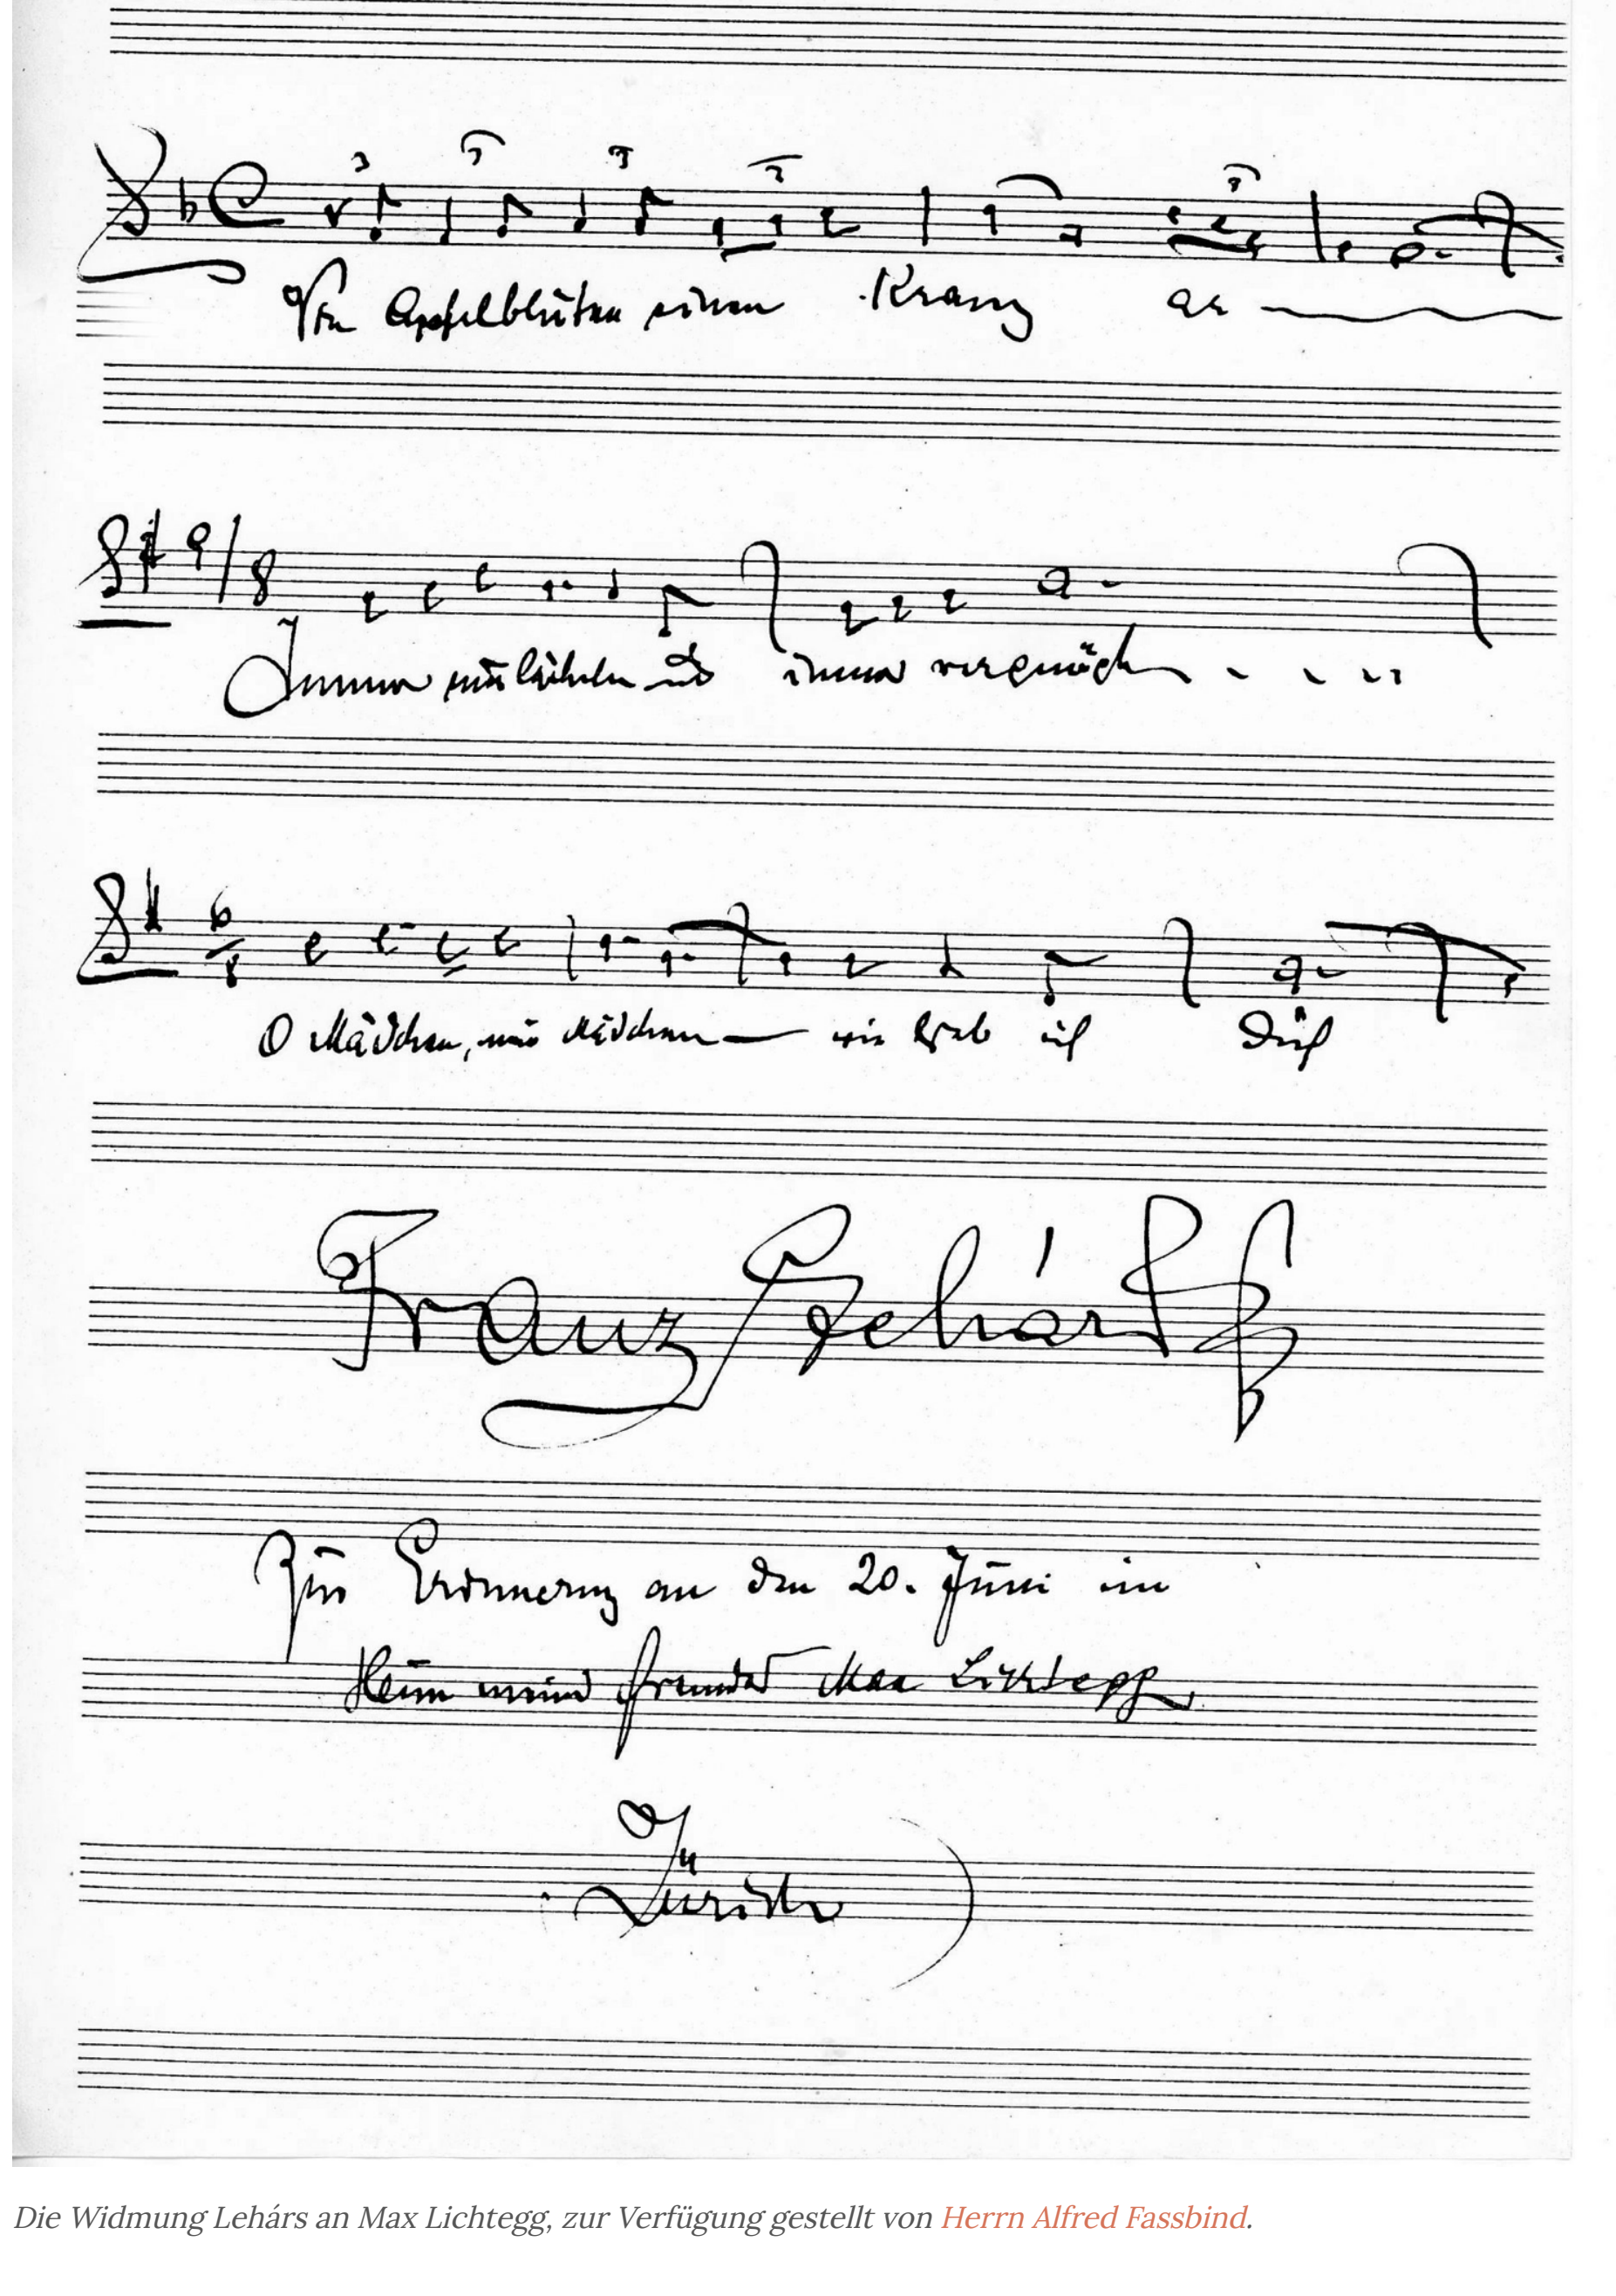 Von Apfelblüten einen Kranz ah
Immer nur lächeln und immer vergnügt - - - -
O Mädchen, mein Mädchen — wie lieb ich Dich
Franz Lehár
Zur Erinnerung an den 20. Juni im
Heim meines Freundes Max Lichtegg
In
Zürich
Die Widmung Lehárs an Max Lichtegg, zur Verfügung gestellt von Herrn Alfred Fassbind.